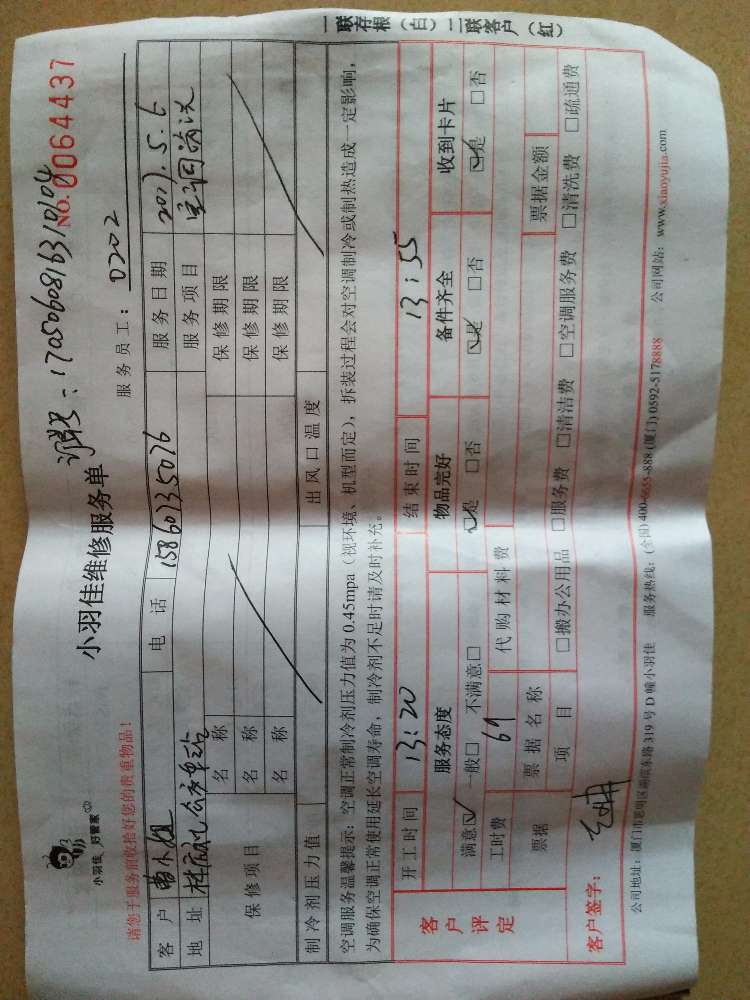 小羽佳 好管家
小羽佳维修服务单
170506081631010
NO.0064437
请您于服务前收拾好您的贵重物品!
服务员工: 0202
一联存根(白) 二联客户(红)
客户 曹小姐 电话 15860135076 服务日期 2017.5.6
地址 公交车站 服务项目 空调清洗
保修项目 名称 保修期限
名称 保修期限
名称 保修期限
制冷剂压力值 出风口温度
空调服务温馨提示:空调正常制冷剂压力值为0.45mpa(视环境、机型而定),拆装过程会对空调制冷或制热造成一定影响,
为确保空调正常使用延长空调寿命,制冷剂不足时请及时补充。
客户评定
开工时间 13:20 结束时间 13:55
服务态度 物品完好 备件齐全 收到卡片
满意☑ 一般□ 不满意□ ☑是 □否 ☑是 □否 ☑是 □否
工时费 69 代购材料费
票据 票据名称 票据金额
项目 □搬办公用品 □服务费 □清洁费 □空调服务费 □清洗费 □疏通费
客户签字:
公司地址:厦门市思明区湖滨东路319号D幢小羽佳 服务热线:(全国)400-6655-888 (厦门)0592-5178888 公司网站:www.xiaoyujia.com